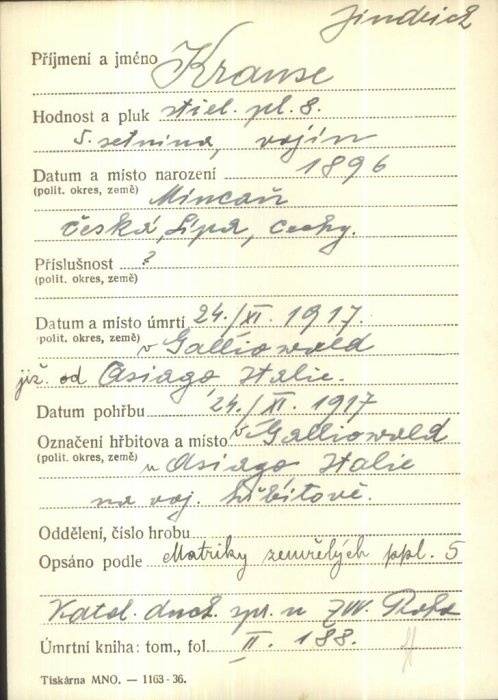 Jindřich
Příjmení a jméno Krause
Hodnost a pluk střel. pl. 8.
5. setnina, vojín
Datum a místo narození 1896
(polit. okres, země) Mincaň
Česká Lípa, Čechy.
Příslušnost ?
(polit. okres, země)
Datum a místo úmrtí 24./XI. 1917.
(polit. okres, země) v Galliowald
již. od Asiago, Italie.
Datum pohřbu 24./XI. 1917
Označení hřbitova a místo v Galliowald
(polit. okres, země) u Asiago, Italie
na voj. hřbitově.
Oddělení, číslo hrobu
Opsáno podle Matriky zemřelých ppl. 5
Katol. duch. spr. u ZW. Praha
Úmrtní kniha: tom., fol. II. 188.
Tiskárna MNO. — 1163-36.